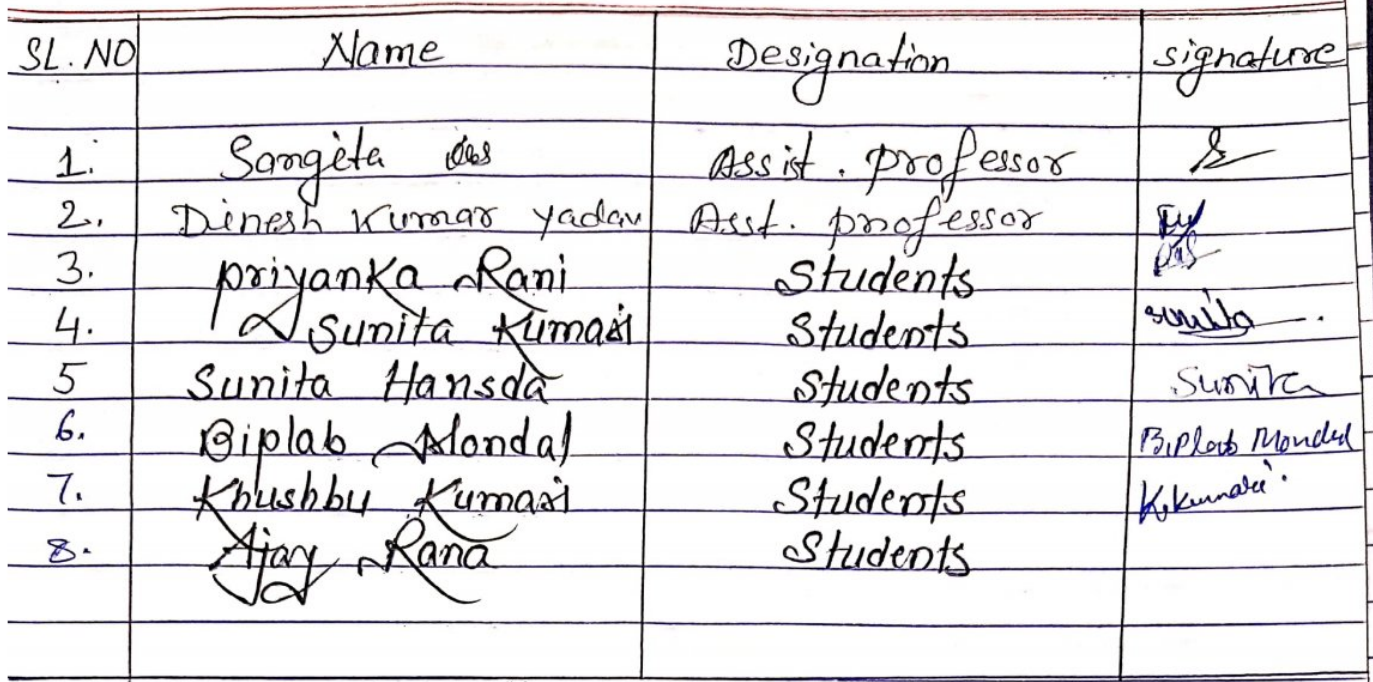 SL. NO Name Designation signature
1. Sangeta das Assist. professor
2. Dinesh Kumar yadav Asst. professor
3. priyanka Rani Students
4. Sunita Kumari Students sunita
5 Sunita Hansda Students Sunita
6. Biplab Mondal Students Biplab Mondal
7. Khushbu Kumari Students K. kumari
8. Ajay Rana Students